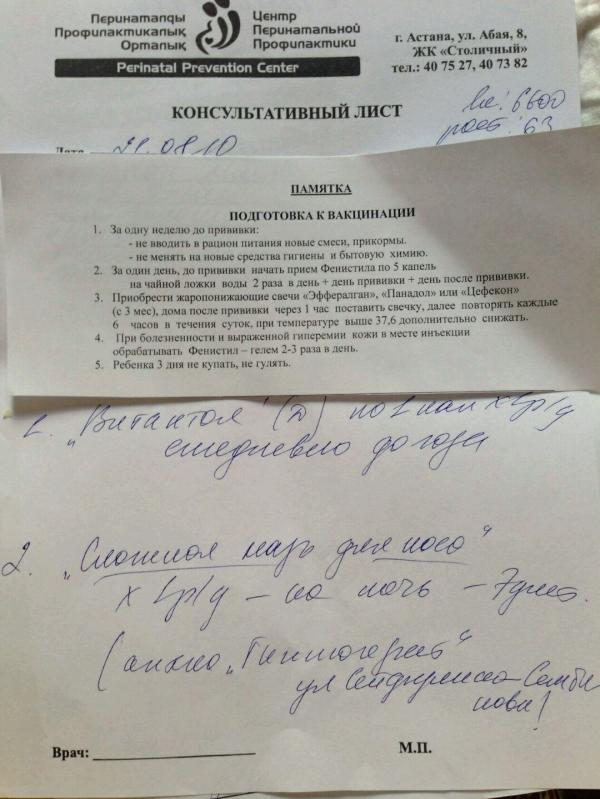 Перинаталды
Профилактикалық
Орталық
Центр
Перинатальной
Профилактики
Perinatal Prevention Center
г. Астана, ул. Абая, 8,
ЖК «Столичный»
тел.: 40 75 27, 40 73 82
КОНСУЛЬТАТИВНЫЙ ЛИСТ
вес: 6600
рост: 63
Дата
ПАМЯТКА
ПОДГОТОВКА К ВАКЦИНАЦИИ
1. За одну неделю до прививки:
- не вводить в рацион питания новые смеси, прикормы.
- не менять на новые средства гигиены и бытовую химию.
2. За один день, до прививки начать прием Фенистила по 5 капель
на чайной ложки воды 2 раза в день + день прививки + день после прививки.
3. Приобрести жаропонижающие свечи «Эффералган», «Панадол» или «Цефекон»
(с 3 мес), дома после прививки через 1 час поставить свечку, далее повторять каждые
6 часов в течения суток, при температуре выше 37,6 дополнительно снижать.
4. При болезненности и выраженной гиперемии кожи в месте инъекции
обрабатывать Фенистил – гелем 2-3 раза в день.
5. Ребенка 3 дня не купать, не гулять.
1. „Витантол" (Д) по 1 кап х 1р/д
ежедневно до года
2. „Сложная мазь для носа"
х 1р/д – на ночь – 7 дней.
ул Сейфуллина–
Врач:
М.П.